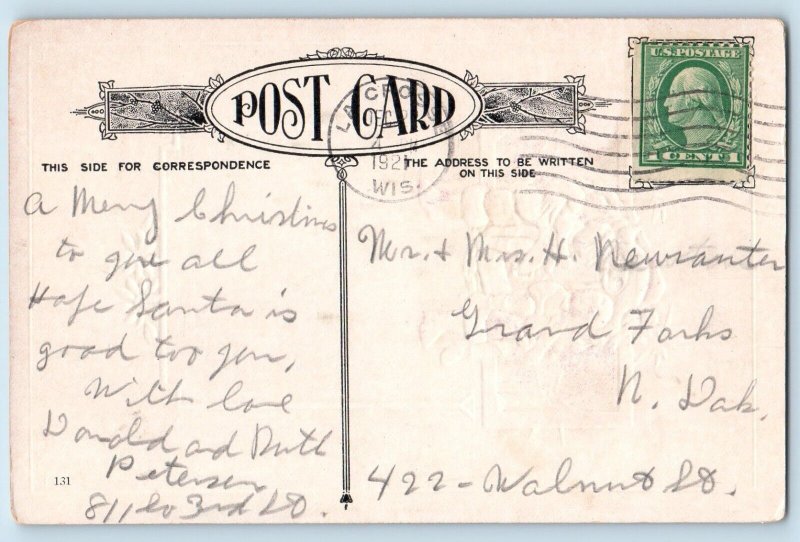 POST CARD
U.S. POSTAGE
1 CENT 1
LA CROSSE
1921
WIS.
THIS SIDE FOR CORRESPONDENCE
THE ADDRESS TO BE WRITTEN
ON THIS SIDE
A Merry Christmas
to you all
Hope Santa is
good too you,
With love
Donald ad Ruth
Petersen
811 So 3rd St.
131
Mr. & Mrs. H.
Grand Forks
N. Dak.
422 - Walnut St.